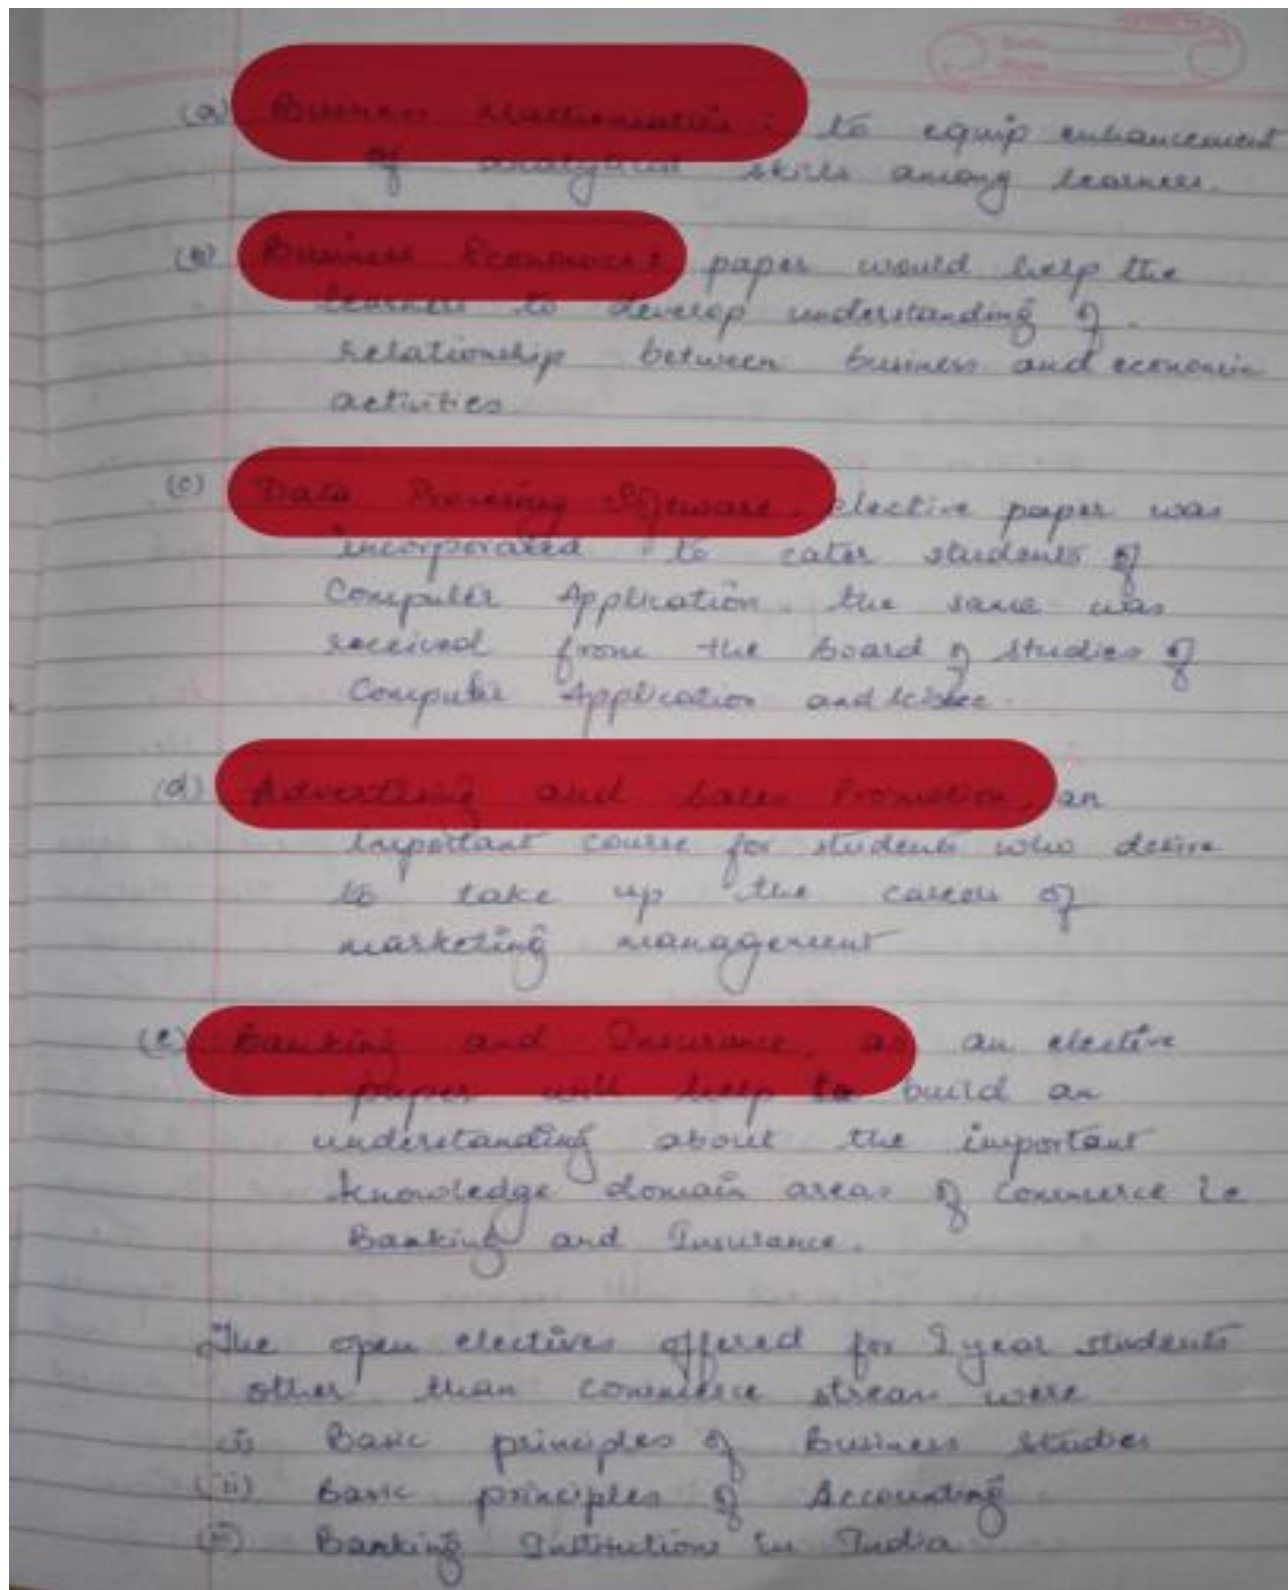 (a) Business Mathematics : to equip enhancement
of analytical skills among learners.
(b) Business Economics paper would help the
learners to develop understanding of
relationship between business and economic
activities.
(c) Data Processing Software, elective paper was
incorporated to cater students of
Computer Application. the same was
received from the Board of Studies of
Computer Application and
(d) Advertising and Sales Promotion, an
important course for students who desire
to take up the career of
marketing management
(e) Banking and Insurance, as an elective
paper will help to build an
understanding about the important
knowledge domain areas of Commerce ie
Banking and Insurance.
The open electives offered for I year students
other than commerce stream were
(i) Basic principles of Business Studies
(ii) Basic principles of Accounting
(iii) Banking Institutions in India